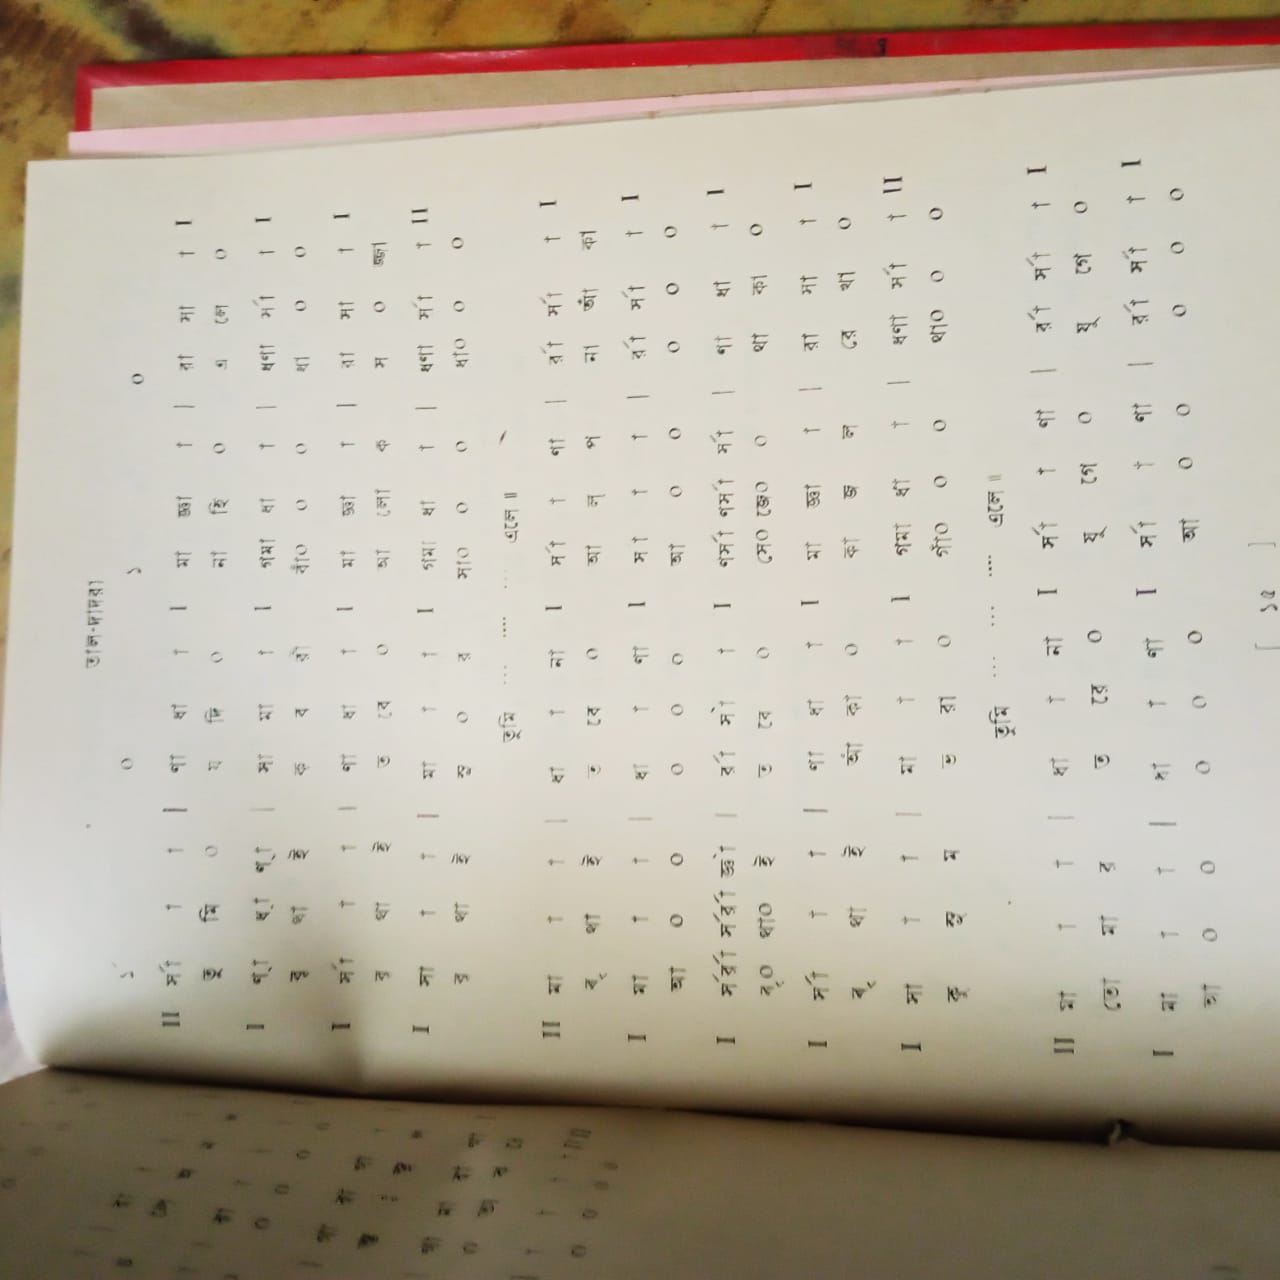 তাল-দাদরা
১´ ০ ১ ০
II র্সা া া | ণা ধা া I মা জ্ঞা া | রা সা া I
তু মি ০ য দি ০ না হি ০ এ লে ০
I ণ্া ধ্া ণ্া | সা মা া I গমা ধা া | ধণা র্সা া I
বৃ থা ই ক ব রী বাঁ০ ০ ০ ধা ০ ০
I র্সা া া | ণা ধা া I মা জ্ঞা া | রা সা া I
বৃ থা ই ত বে ০ আ লো ক স ০ জ্জা
I সা া া | মা া া I গমা ধা া | ধণা র্সা া II
বৃ থা ই সু ০ র সা০ ০ ০ ধা০ ০ ০
তুমি ... .... ... এলে॥
II মা া া | ধা া না I র্সা া ণা | র্রা র্সা া I
বৃ থা ই ত বে ০ আ ল্ প না আঁ কা
I মা া া | ধা া ণা I র্সা া া | র্রা র্সা া I
আ ০ ০ ০ ০ ০ আ ০ ০ ০ ০ ০
I র্সর্রা র্সর্রা র্জ্ঞা | র্রা র্সা া I ণর্সা ণর্সা র্সা | ণা ধা া I
বৃ০ থা০ ই ত বে ০ সে০ জে০ ০ থা কা ০
I র্সা া া | ণা ধা া I মা জ্ঞা া | রা সা া I
বৃ থা ই আঁ কা ০ কা জ ল রে খা ০
I সা া া | মা া া I গমা ধা া | ধণা র্সা া II
কু সু ম ড রা ০ গাঁ০ ০ ০ থা০ ০ ০
তুমি ... ... .... এলে॥
II মা া া | ধা া না I র্সা া ণা | র্রা র্সা া I
তো মা র ত রে ০ যু গে ০ যু গে ০
I মা া া | ধা া ণা I র্সা া ণা | র্রা র্সা া I
আ ০ ০ ০ ০ ০ আ ০ ০ ০ ০ ০
[ ১৫ ]